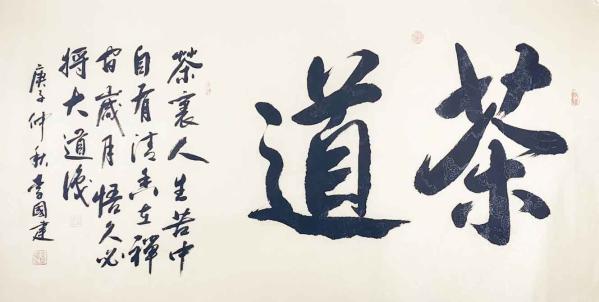 茶道
茶裏人生苦中
自有清香在禪
歲月悟久必
將大道
庚子仲秋李國建